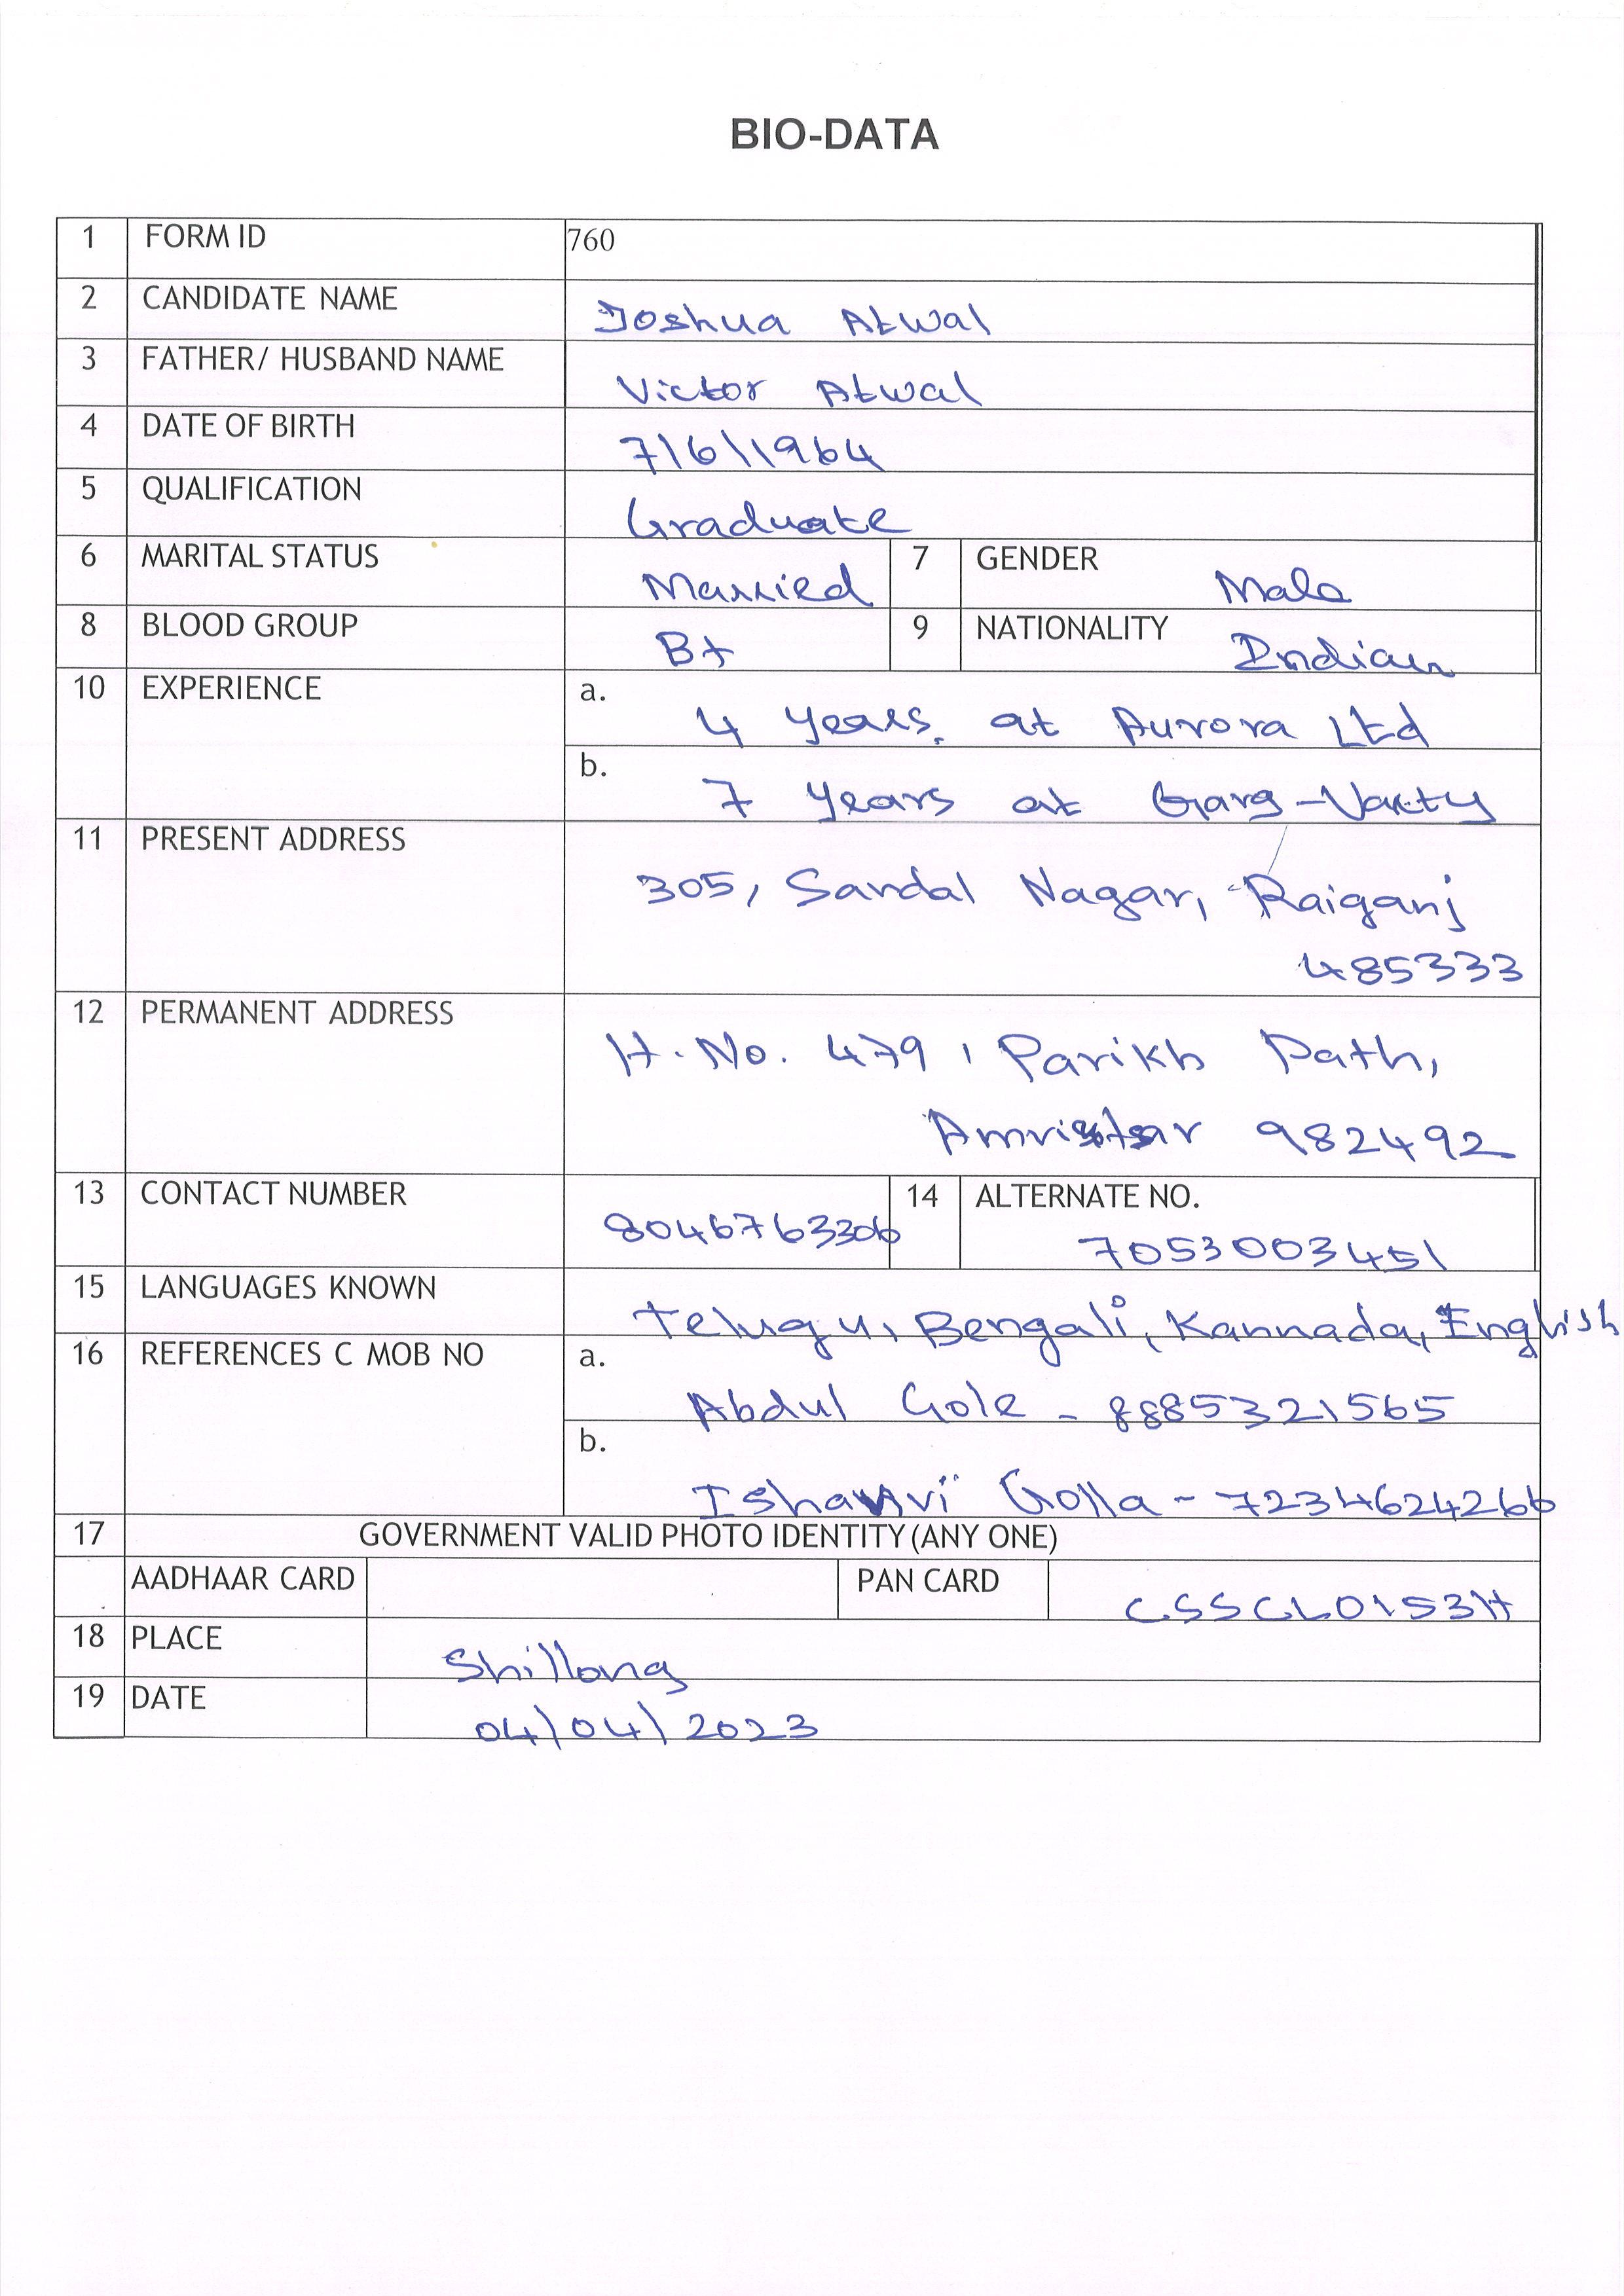 BIO-DATA
1 FORM ID 760
2 CANDIDATE NAME Joshua Atwal
3 FATHER/ HUSBAND NAME Victor Atwal
4 DATE OF BIRTH 7/6/1964
5 QUALIFICATION Graduate
6 MARITAL STATUS Married 7 GENDER Male
8 BLOOD GROUP B+ 9 NATIONALITY Indian
10 EXPERIENCE a. 4 years at Aurora Ltd
b. 7 years at Garg-Varty
11 PRESENT ADDRESS 305, Sandal Nagar, Raiganj
485333
12 PERMANENT ADDRESS H. No. 479, Parikh Path,
Amritsar 982492
13 CONTACT NUMBER 8046763306 14 ALTERNATE NO. 7053003451
15 LANGUAGES KNOWN Telugu, Bengali, Kannada, English
16 REFERENCES C MOB NO a. Abdul Gole - 8885321565
b. Ishanvi Golla - 7234624266
17 GOVERNMENT VALID PHOTO IDENTITY (ANY ONE)
AADHAAR CARD PAN CARD CSSCL0153H
18 PLACE Shillong
19 DATE 04/04/2023